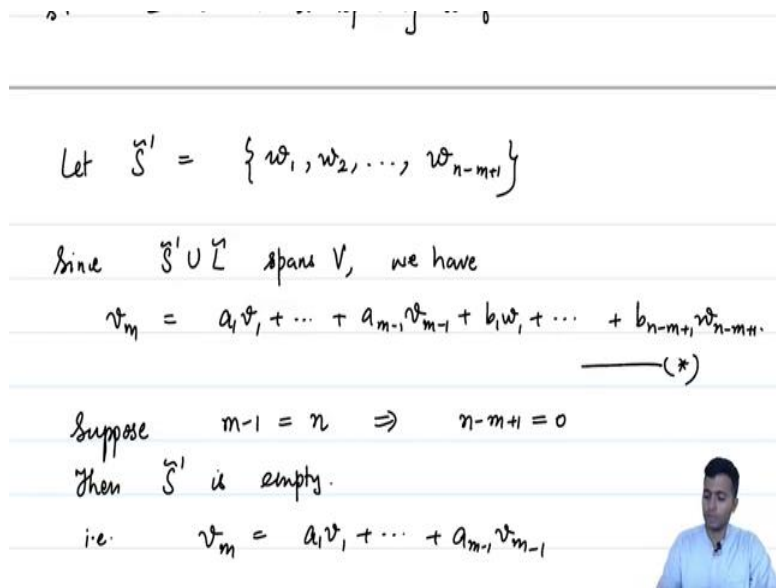 Let S̃' = { w₁, w₂, ..., wₙ₋ₘ₊₁ }
Since S̃' ∪ L̃ spans V, we have
vₘ = a₁v₁ + ... + aₘ₋₁vₘ₋₁ + b₁w₁ + ... + bₙ₋ₘ₊₁wₙ₋ₘ₊₁.
——(*)
Suppose m-1 = n ⇒ n-m+1 = 0
Then S̃' is empty.
i.e. vₘ = a₁v₁ + ... + aₘ₋₁vₘ₋₁